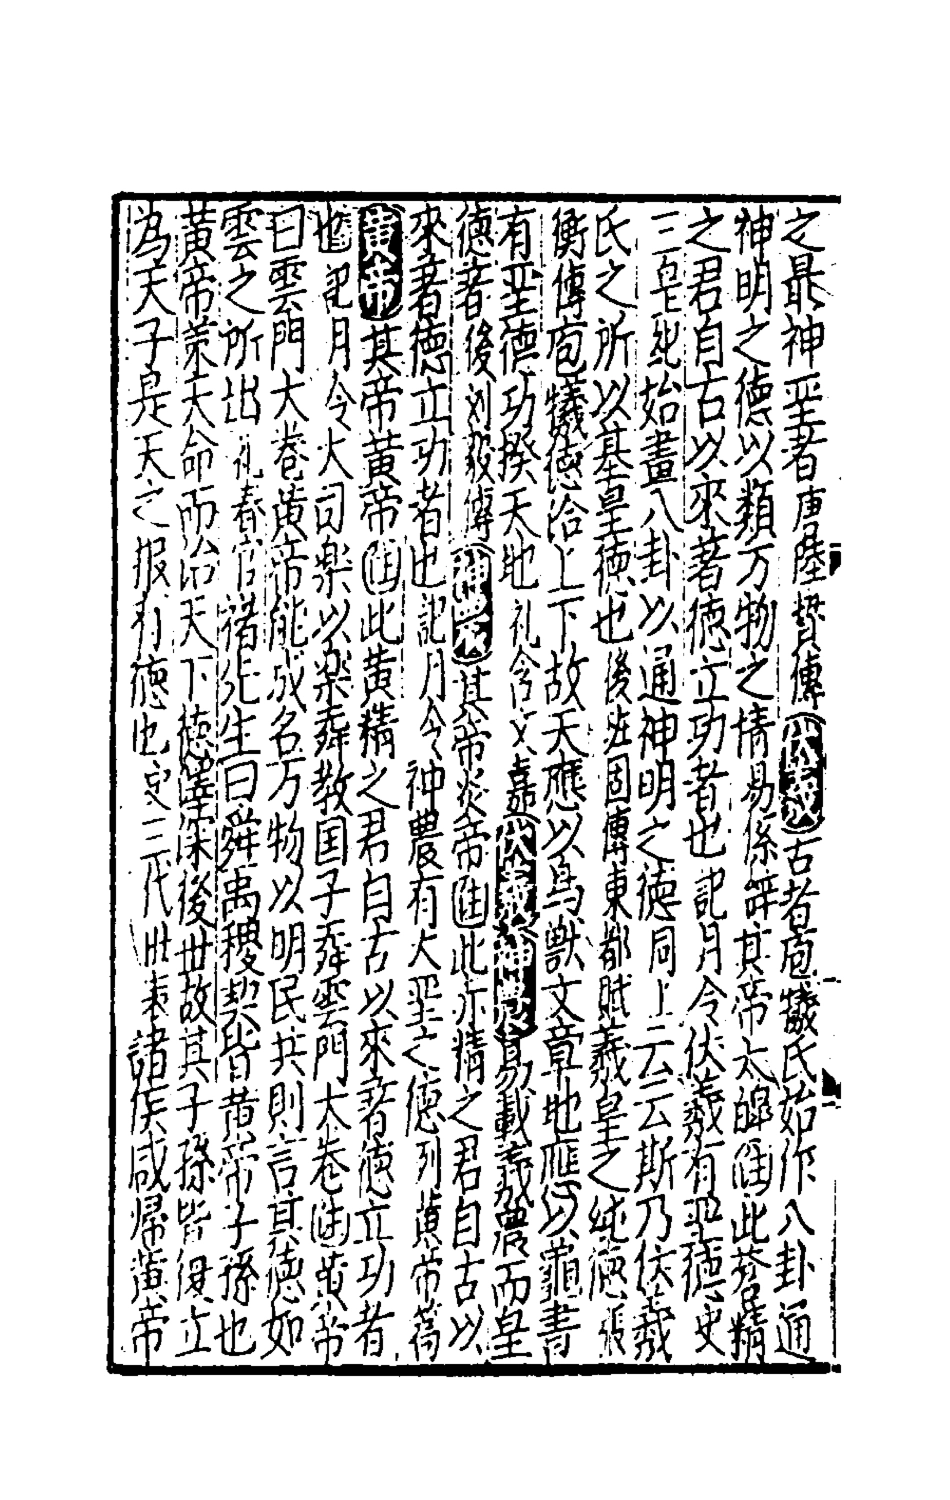 之最神圣者唐陸贄傳伏羲古者庖犧氏始作八卦通
神明之德以類万物之情易係辞其帝太皥注此蒼精
之君自古以來著德立功者也記月令伏羲有圣德史
三皇紀始畫八卦以通神明之德同上云云斯乃伏羲
氏之所以基皇德也後班固傳東都賦羲皇之純德張
衡傳庖犧德洽上下故天應以鳥獣文章地應以龜書
有圣德功揆天地礼含文嘉伏羲神農易載羲農而皇
德著後刘毅傳神農其帝炎帝注此亦精之君自古以
來著德立功者也記月令神農有大圣之德列黄帝篇
黄帝其帝黄帝注此黄精之君自古以來著德立功者
也記月令大司楽以楽舞教国子舞雲門大巻注黄帝
曰雲門大巻黄帝能成名万物以明民共則言其德如
雲之所出礼春官褚先生曰舜禹稷契皆黄帝子孫也
黄帝策天命而治天下德澤深後世故其子孫皆復立
為天子是天之报有德也史三代世表諸侯咸帰黄帝